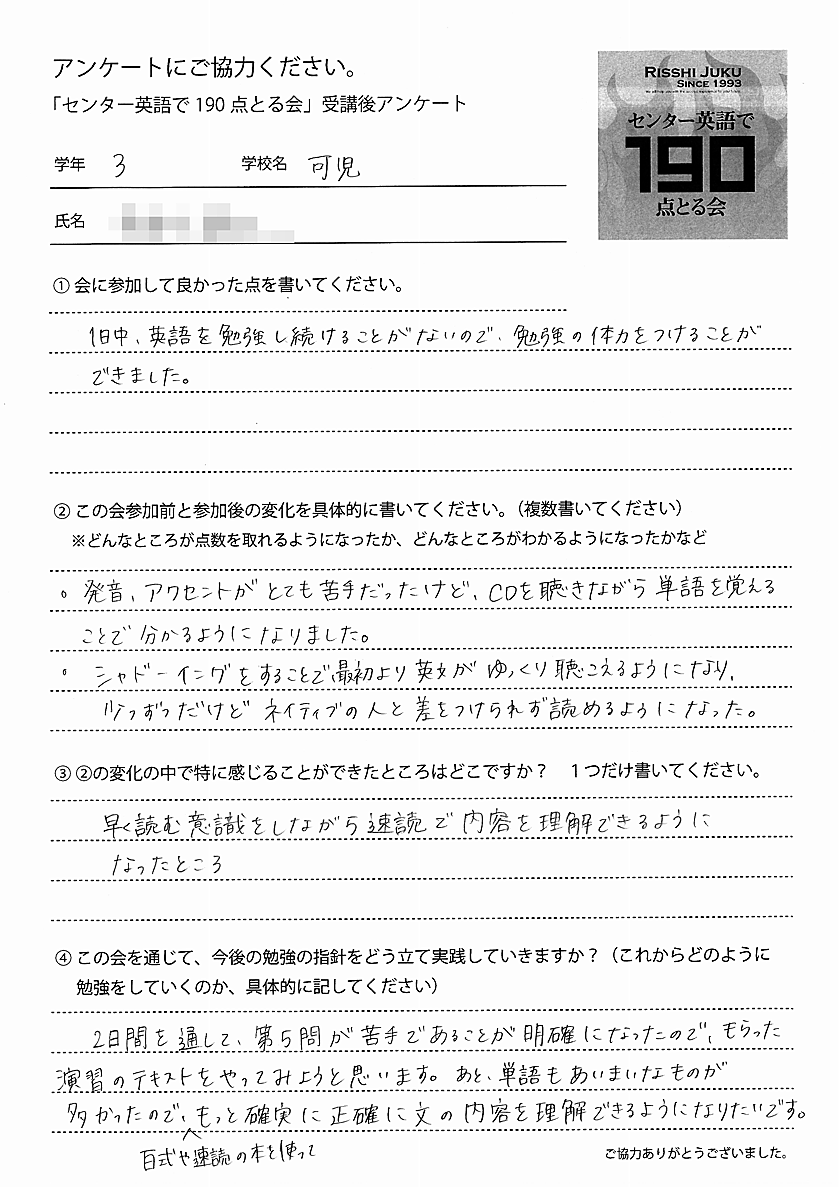 アンケートにご協力ください。
「センター英語で 190 点とる会」受講後アンケート
RISSHI JUKU
SINCE 1993
センター英語で
190
点とる会
学年 3 学校名 可児
氏名
① 会に参加して良かった点を書いてください。
1日中、英語を勉強し続けることがないので、勉強の体力をつけることが
できました。
② この会参加前と参加後の変化を具体的に書いてください。（複数書いてください）
※どんなところが点数を取れるようになったか、どんなところがわかるようになったかなど
。発音、アクセントがとても苦手だったけど、CDを聴きながら単語を覚える
ことで分かるようになりました。
。シャドーイングをすることで最初より英文がゆっくり聴こえるようになり、
少っずつだけどネイティブの人と差をつけられず読めるようになった。
③ ②の変化の中で特に感じることができたところはどこですか？ 1つだけ書いてください。
早く読む意識をしながら速読で内容を理解できるように
なったところ
④ この会を通じて、今後の勉強の指針をどう立て実践していきますか？（これからどのように
勉強をしていくのか、具体的に記してください）
2日間を通して、第5問が苦手であることが明確になったので、もらった
演習のテキストをやってみようと思います。あと、単語もあいまいなものが
多かったので、もっと確実に正確に文の内容を理解できるようになりたいです。
百式や速読の本を使って
ご協力ありがとうございました。